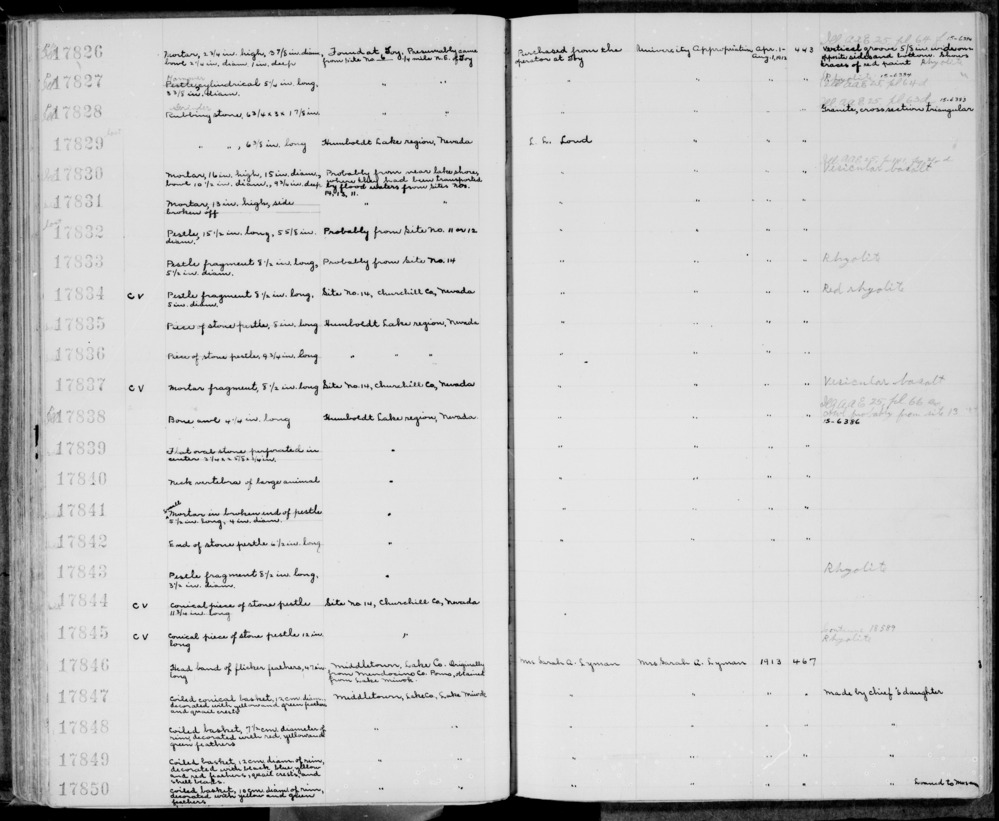 17826 Mortar, 2 3/4 in. high, 3 7/8 in. diam, Found at Toy. Presumably came Purchased from the University Appropriation Apr. 1- 443 Vertical groove 5/8 in. wide on
bowl 2 1/4 in. diam, 1 in. deep from Site No. 6 - 3/4 mile N.E. of Toy operator at Toy Aug. 1, 1912 opposite sides and bottom. Shows
traces of red paint Rhyolite
17827 Pestle, cylindrical 5 1/4 in. long, " " " " "
3 3/8 in. diam.
17828 Rubbing stone, 6 3/4 x 3 x 1 7/8 in " " " " " Granite, cross section triangular
17829 " " , 6 3/8 in. long Humboldt Lake region, Nevada L. L. Loud " " "
17830 Mortar, 16 in. high, 15 in. diam, Probably from near lake shore, " " " " Vesicular basalt
bowl 10 1/2 in. diam., 9 3/4 in. deep where they had been transported
by flood waters from Sites Nos.
14, 12, 11.
17831 Mortar, 13 in. high, side " " " " " "
broken off
17832 Pestle, 15 1/2 in. long, 5 5/8 in. Probably from Site No. 11 or 12 " " " "
diam.
17833 Pestle fragment 8 1/2 in. long, Probably from Site No. 14 " " " " Rhyolite
5 1/2 in. diam.
17834 CV Pestle fragment 8 1/2 in. long, Site No. 14, Churchill Co, Nevada " " " " Red rhyolite
5 in. diam.
17835 Piece of stone pestle, 5 in. long Humboldt Lake region, Nevada " " " "
17836 Piece of stone pestle, 9 3/4 in. long " " " " " " "
17837 CV Mortar fragment, 8 1/2 in. long Site No. 14, Churchill Co, Nevada " " " " Vesicular basalt
17838 Bone awl 4 1/4 in. long Humboldt Lake region, Nevada " " " " probably from site 13
13-6386
17839 Flat oval stone perforated in " " " " "
center
17840 Neck vertebra of large animal " " " " "
17841 Small Mortar in broken end of pestle " " " " "
5 1/2 in. long, 4 in. diam.
17842 End of stone pestle 6 1/2 in. long " " " " "
17843 Pestle fragment 8 1/2 in. long, " Rhyolite
3 1/2 in. diam.
17844 CV Conical piece of stone pestle Site No 14, Churchill Co, Nevada "
11 3/4 in. long
17845 CV Conical piece of stone pestle 12 in " Rhyolite
long
17846 Head band of flicker feathers, 47 in. Middletown, Lake Co. Originally Mrs Sarah A. Lyman Mrs. Sarah A. Lyman 1913 467
long from Mendocino Co. Pomo, obtained
from Lake Miwok
17847 Coiled conical basket, 12 cm diam, Middletown, Lake Co, Lake Miwok " " " " Made by chief's daughter
decorated with yellow and green feathers
and quail crests
17848 Coiled basket, 7 1/2 cm diameter of " " " " " " "
rim, decorated with red, yellow and
green feathers
17849 Coiled basket, 12 cm diam of rim, " " " " " " "
decorated with black, blue, yellow
and red feathers, quail crests, and
shell beads.
17850 Coiled basket, 10 cm diam of rim, " " " " " " " Loaned to
decorated with yellow and green
feathers